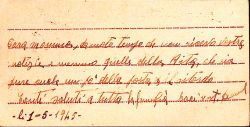 Cara mamma, da molto tempo che non ricevo vostre
notizie e nemmeno quelle della Rita, che sia
pure anche un po' della posta il ritardo
tanti saluti a tutta la famiglia baci
- li 2-5-1945 -